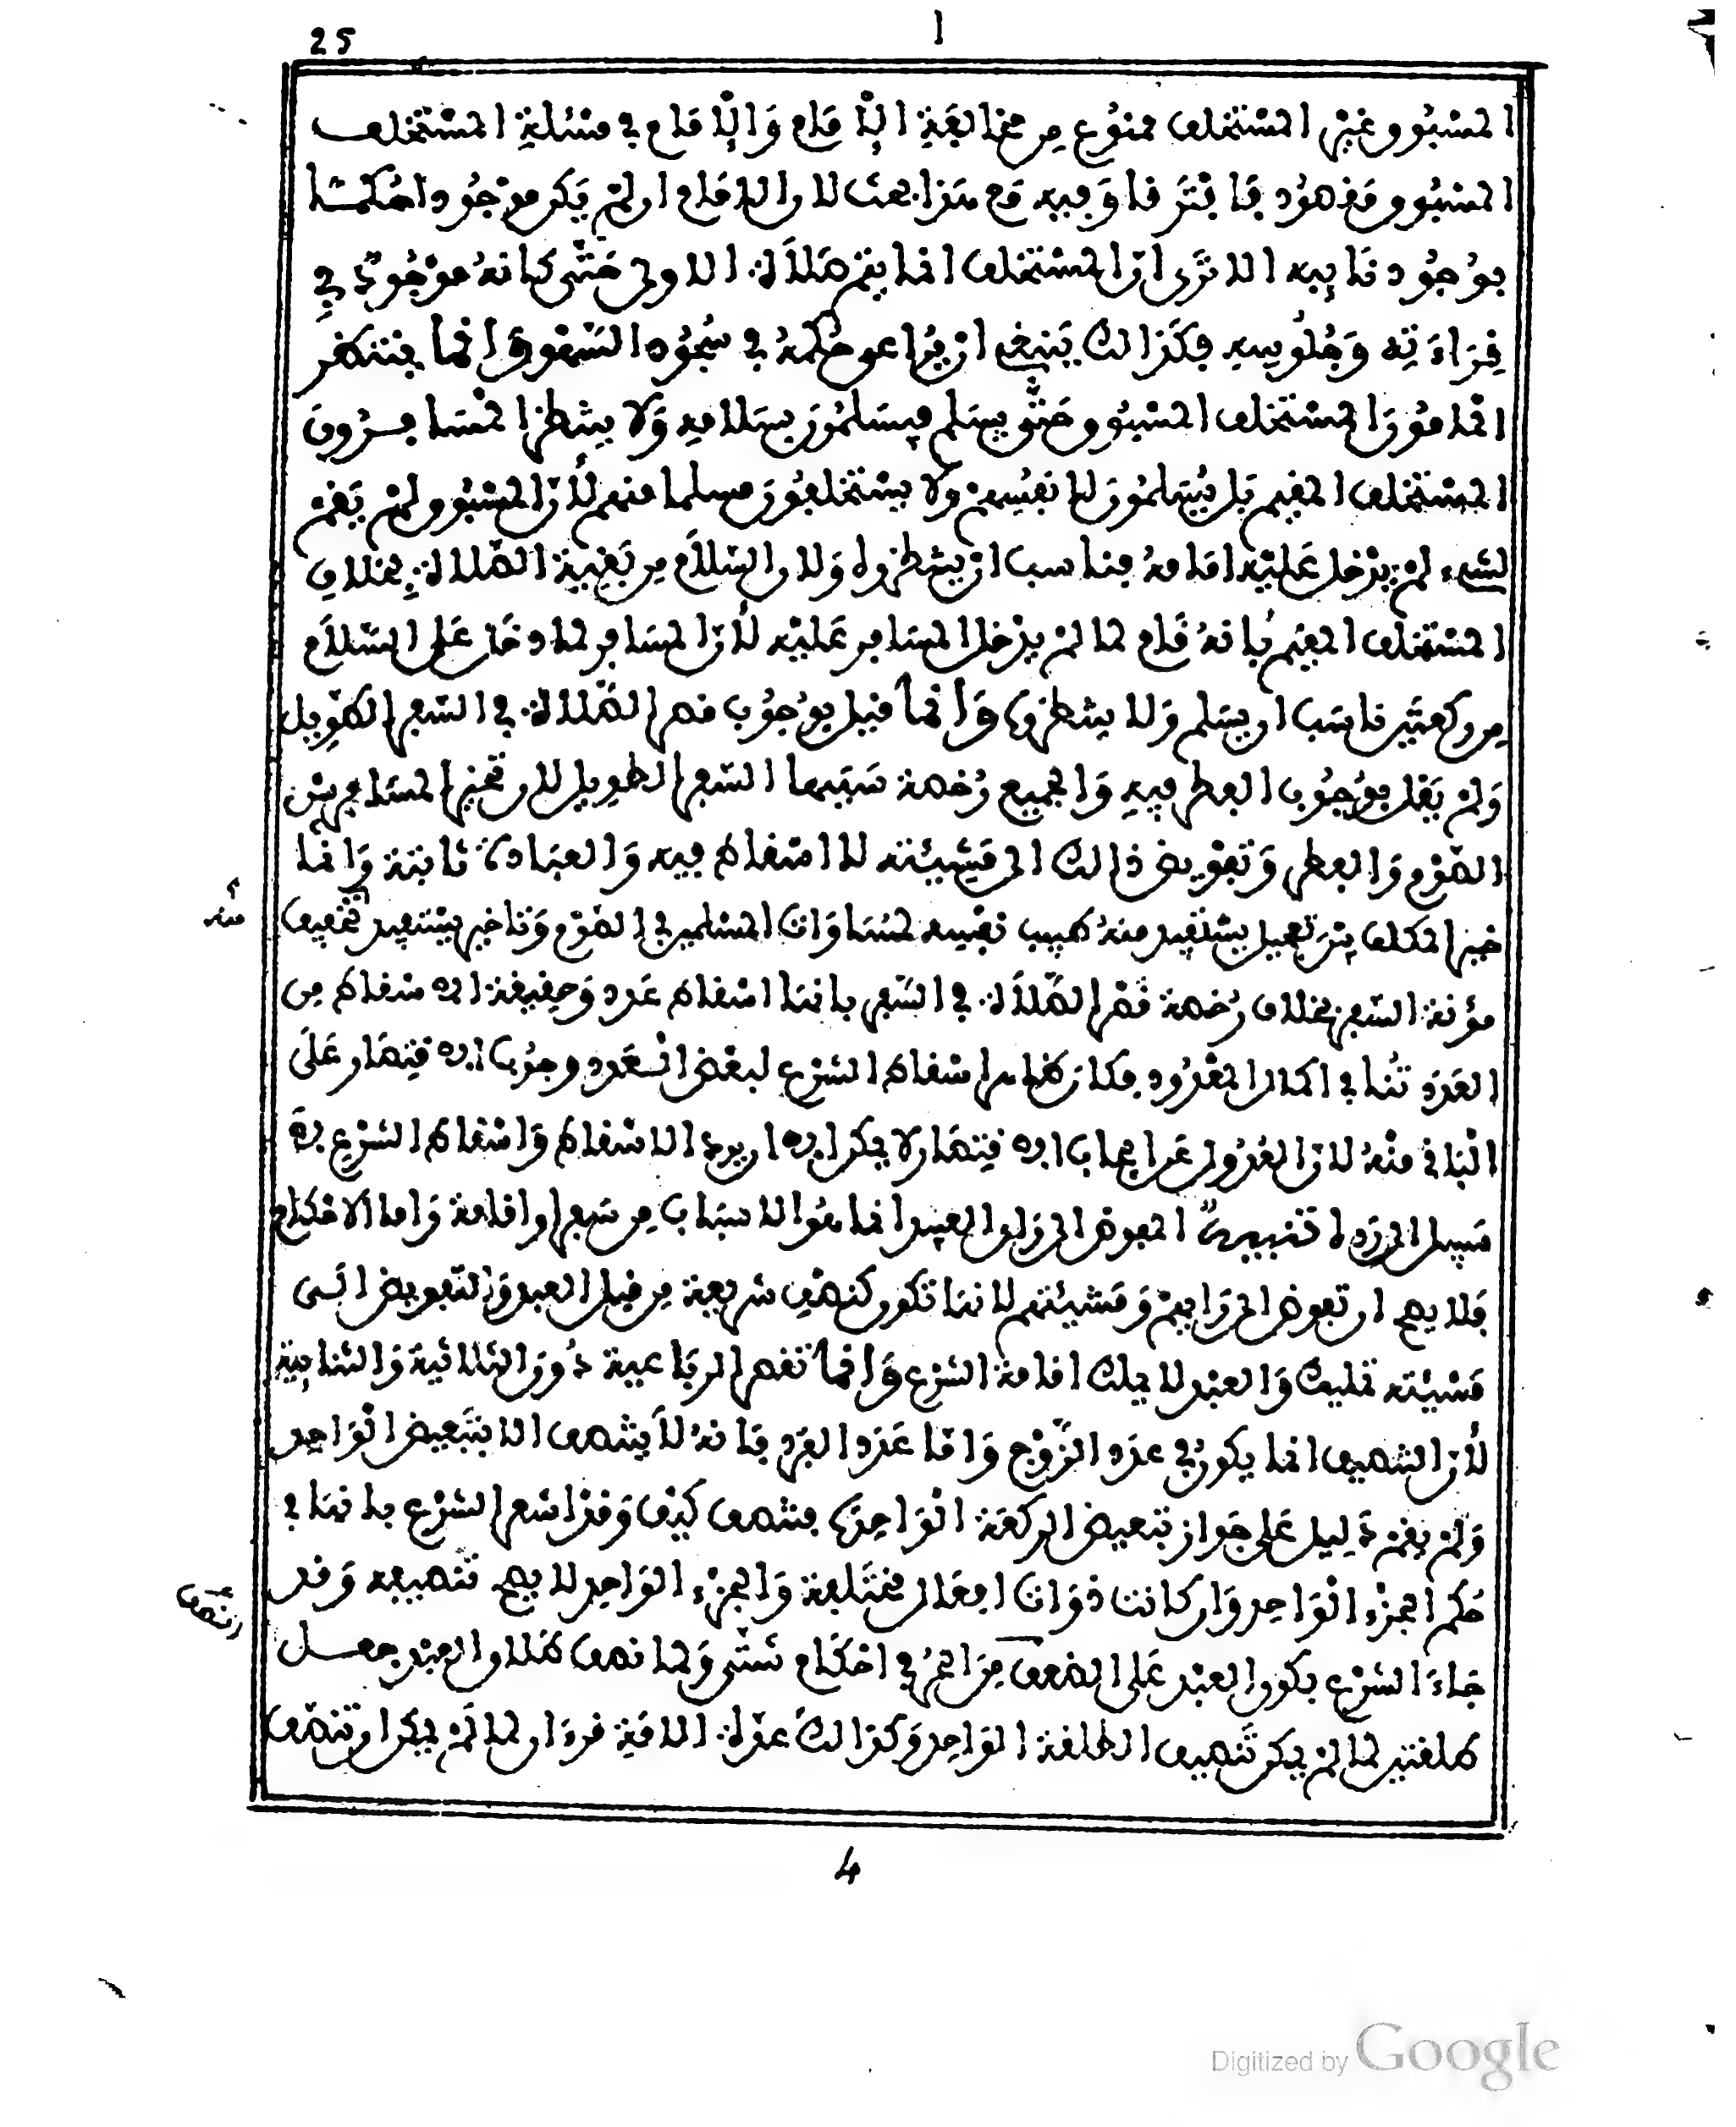 25
ا
المسبوق غير المستخلف ممنوع من مخالفة الإمام والإمام في مسئلة المستخلف
المسبوق مفقود فافترقا وفيه مع هذا بحث لان الامام ان لم يكن موجودا حكمنا
بوجود نايبه الا ترى ان المستخلف انما يتم صلاة الاولى حتى كانه موجود في
قراءته وجلوسه فكذالك ينبغي ان يراعى حكمه في سجود السهو وانما ينتظر
المامون المستخلف المسبوق حتى يسلم فيسلمون بسلامه ولا ينتظر المسافرون
المستخلف المقيم بل يسلمون لانفسهم ولا يستخلفون مسلما منهم لأن المسبوق لم يقم
لشيء لم يدخل عليه امامه فناسب ان ينتظروه ولان السلام من بقية الصلاة بخلاف
المستخلف المقيم فانه قام لما لم يدخل المسافر عليه لأن المسافر لما دخل على السلام
من ركعتين ناسب ان يسلم ولا ينتظره وانما قيل بوجوب قصر الصلاة في السفر الطويل
ولم يقل بوجوب الفطر فيه والجميع رخصة سببها السفر الطويل لان تخيير المسافر بين
الصوم والفطر وتفويض ذالك الى مشيئته لا اسقاط فيه والعبادة ثابتة وانما
خير المكلف بين تعجيل يستفيد منه طيب نفسه لمساوات المسلمين في الصوم وتاخير يستفيد تخفيف
منه
مؤنة السفر بخلاف رخصة قصر الصلاة في السفر بانها اسقاط عدد وحقيقة الاسقاط من
العدد تنافي اكمال المعدود فكان ظاهر اسقاط الشرع لبعض العدد وجوب الاقتصار على
الباقي منه لان العدول عن ايجاب الاقتصار لا يمكن الا ان يرد الاسقاط واسقاط الشرع لا
سبيل الى رده تنبيه المفوض الى راي العبيد انما هو الاسباب من سفر او اقامة واما الاحكام
فلا يصح ان تفوض الى رايهم ومشيئتهم لانها تكون كنصب شريعة من قبل العبد والتفويض الى
مشيئته تمليك والعبد لا يملك اقامة الشرع وانما تقصر الرباعية دون الثلاثية والثنايية
لأن التنصيف انما يكون في عدد الزوج واما عدد الفرد فانه لا يتنصف الا بتبعيض الواحد
ولم يقم دليل على جواز تبعيض الركعة الواحدة فتنصف كيف وقد اشعر الشرع بانها في
حكم الجزء الواحد وان كانت ذوات افعال مختلفة والجزء الواحد لا يصح تنصيفه وقد
جاء الشرع بكون العبد على النصف من الحر في احكام شتى ولما نصف طلاق العبد جعل
طلقتين لما لم يمكن تنصيف الطلقة الواحدة وكذالك عدة الامة قردان لما لم يمكن ان تنصف
4
Digitized by Google